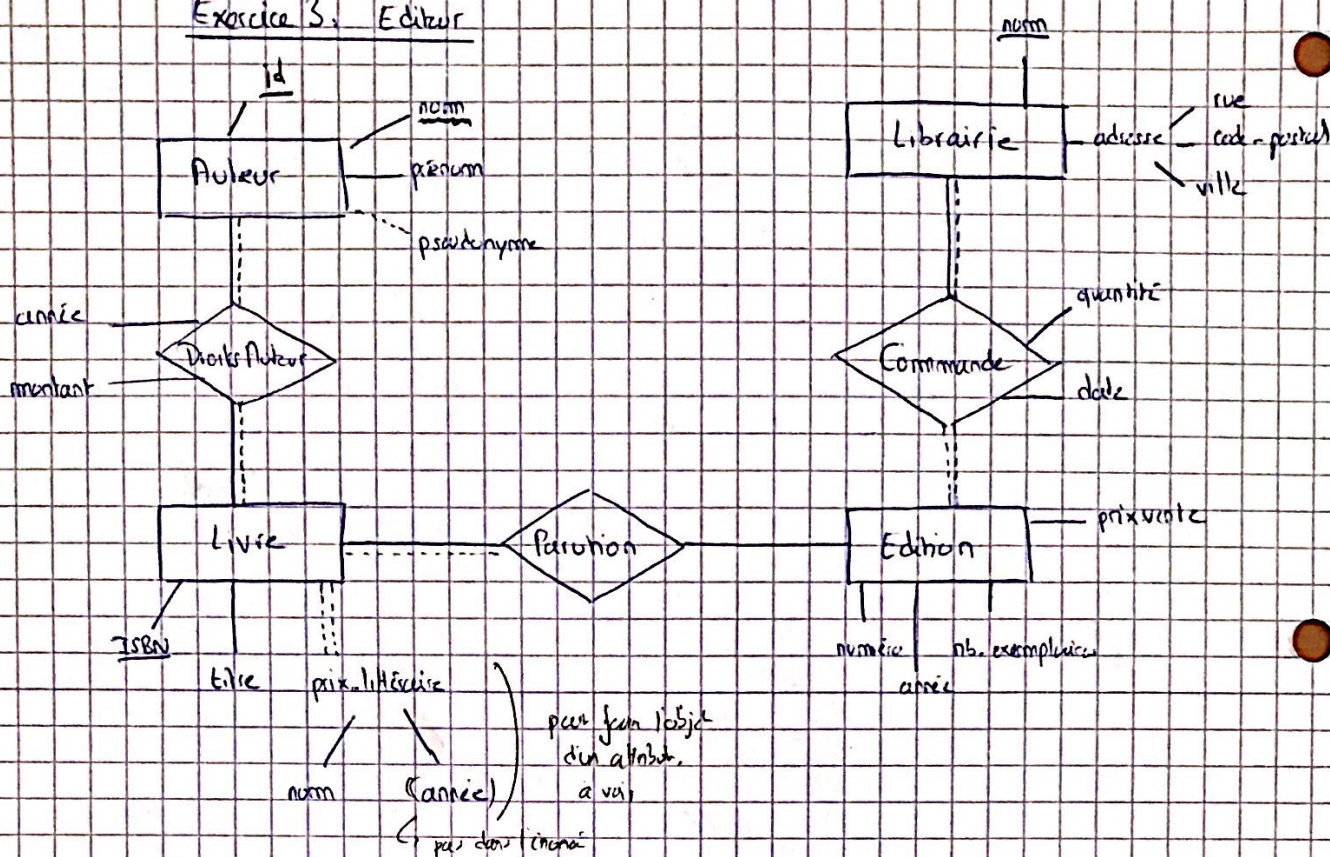 Exercice 3. Editeur
id
nom
prénom
pseudonyme
Auteur
année
montant
Droits Auteur
Livre
ISBN
titre
prix_littéraire
nom
(année)
pas dans l'énoncé
peut faire l'objet
d'un attribut.
à voir
Parution
nom
Librairie
adresse
rue
code-postal
ville
Commande
quantité
date
Edition
prix vente
numéro
année
nb. exemplaires